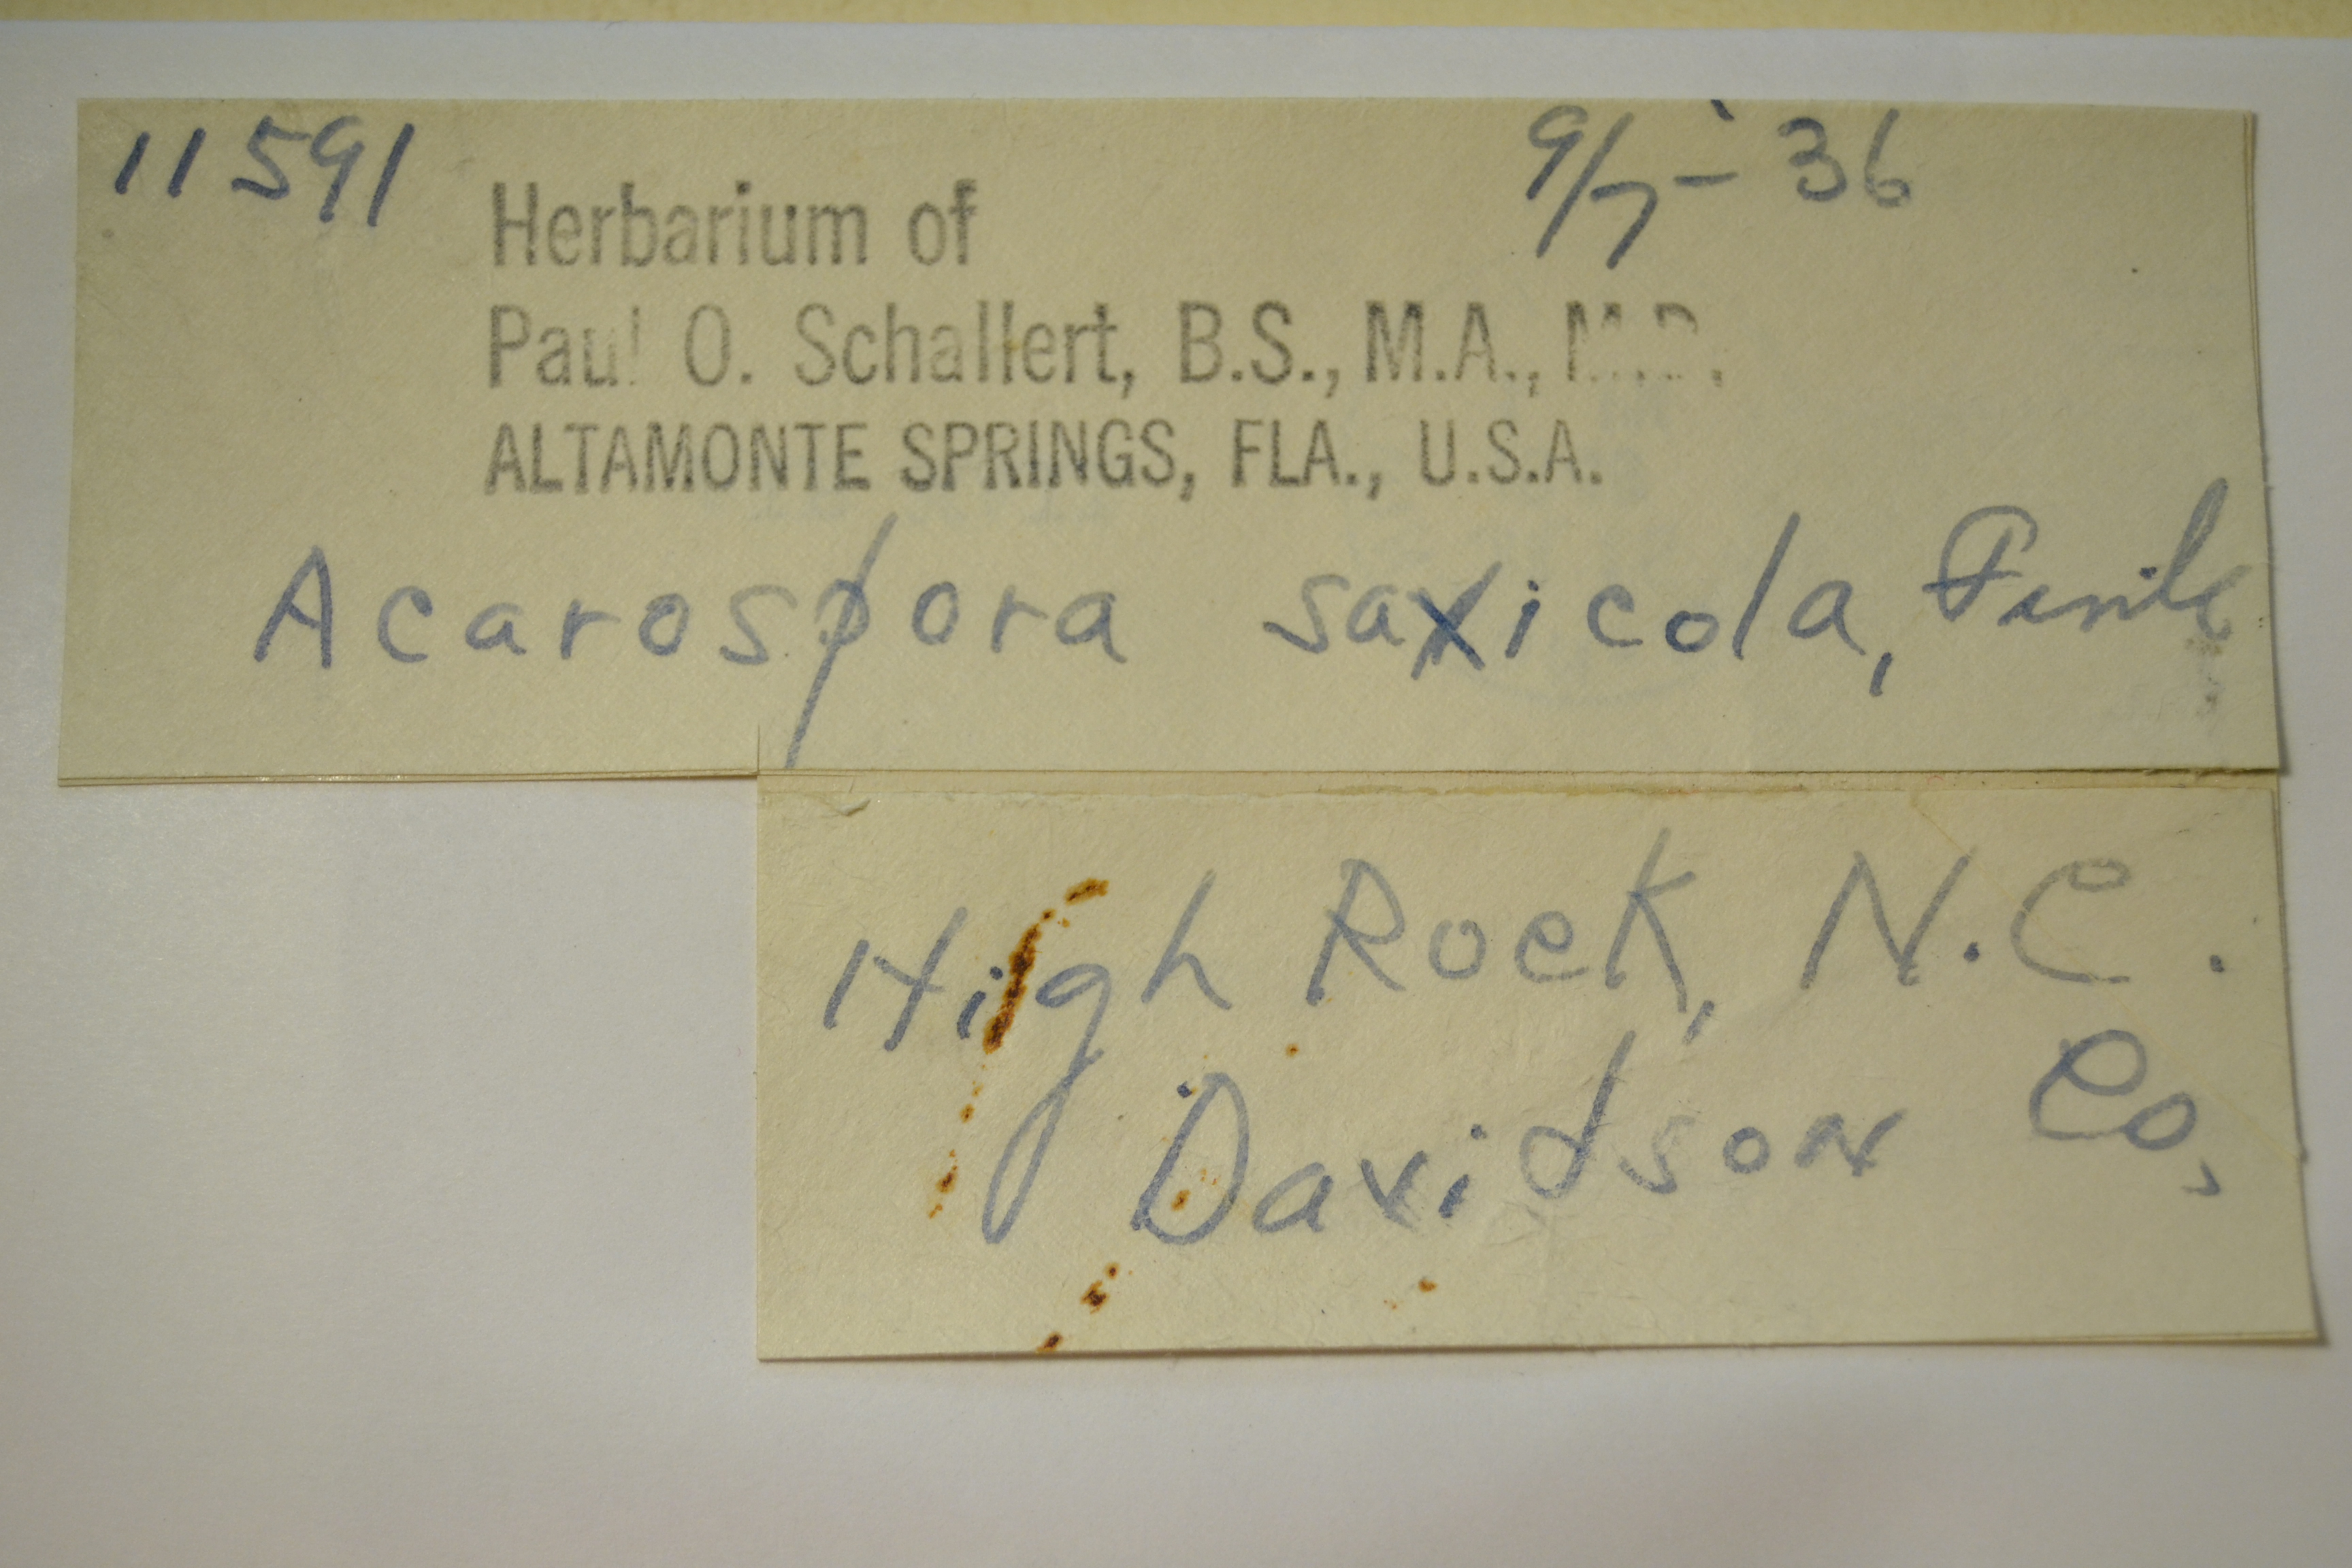 11591
9/7-36
Herbarium of
Paul O. Schallert, B.S., M.A., M.D.
ALTAMONTE SPRINGS, FLA., U.S.A.
Acarospora saxicola, Fink
High Rock, N.C.
Davidson Co,